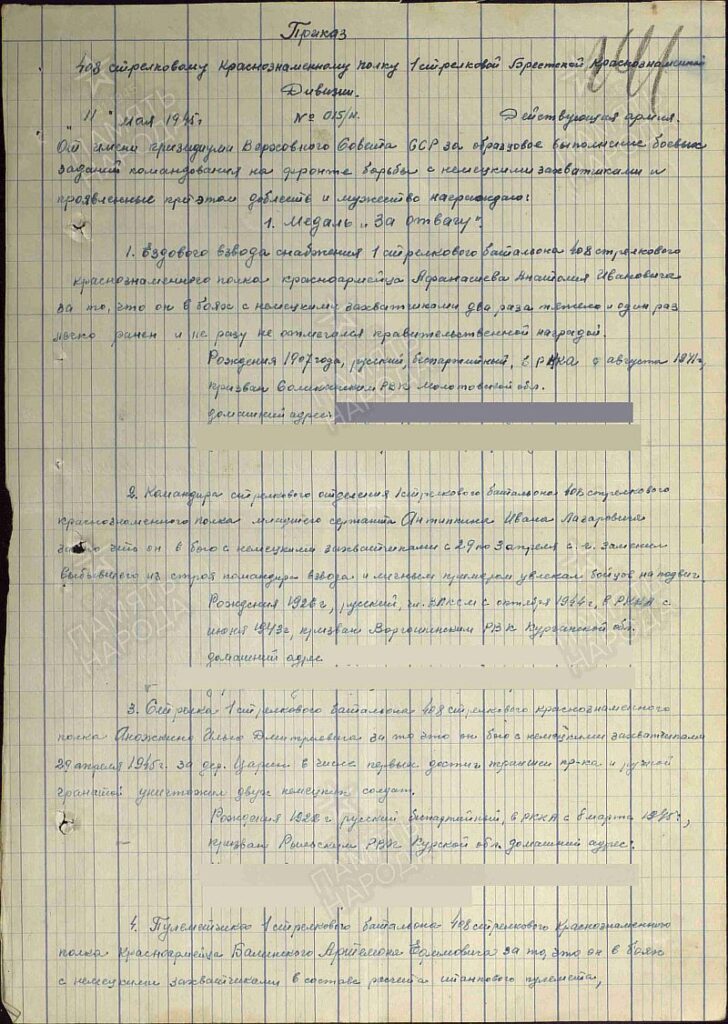 Приказ
408 стрелковому Краснознаменному полку 1 стрелковой Брестской Краснознаменной
Дивизии.
"11" мая 1945г № 015/н. Действующая армия.
От имени президиума Верховного Совета СССР за образцовое выполнение боевых
заданий командования на фронте борьбы с немецкими захватчиками и
проявленные при этом доблесть и мужество награждаю:
1. Медаль "За отвагу".
1. Ездового взвода снабжения 1 стрелкового батальона 408 стрелкового
краснознаменного полка красноармейца Афанасьева Анатолия Ивановича
за то, что он в боях с немецкими захватчиками два раза тяжело и один раз
легко ранен и не разу не отмечался правительственной наградой.
Рождения 1907 года, русский, беспартийный, в РККА с августа 1941г,
призван РВК Молотовской обл.
домашний адрес:
2. Командира стрелкового отделения 1 стрелкового батальона 408 стрелкового
краснознаменного полка младшего сержанта Антипина Ивана Лазаровича
за то что он в бою с немецкими захватчиками с 29 по 3 апреля с. г. заменил
выбывшего из строя командира взвода и личным примером увлекал бойцов на подвиг.
Рождения 1926г, русский, чл. ВЛКСМ с октября 1944г, в РККА с
июня 1943г, призван РВК Курганской обл.
домашний адрес
3. Стрелка 1 стрелкового батальона 408 стрелкового краснознаменного
полка Дмитриевича за то что он бою с немецкими захватчиками
29 апреля 1945г. за дер. в числе первых достиг траншеи пр-ка и ручной
гранатой уничтожил двух немецких солдат.
Рождения русский беспартийный, в РККА с 8 марта 1945г,
призван Рыльским РВК Курской обл. домашний адрес:
4. Пулеметчика 1 стрелкового батальона 408 стрелкового Краснознаменного
полка Красноармейца Балинского Артемона Ефимовича за то, что он в боях
с немецкими захватчиками в составе расчета станкового пулемета,
ПАМЯТЬ НАРОДА